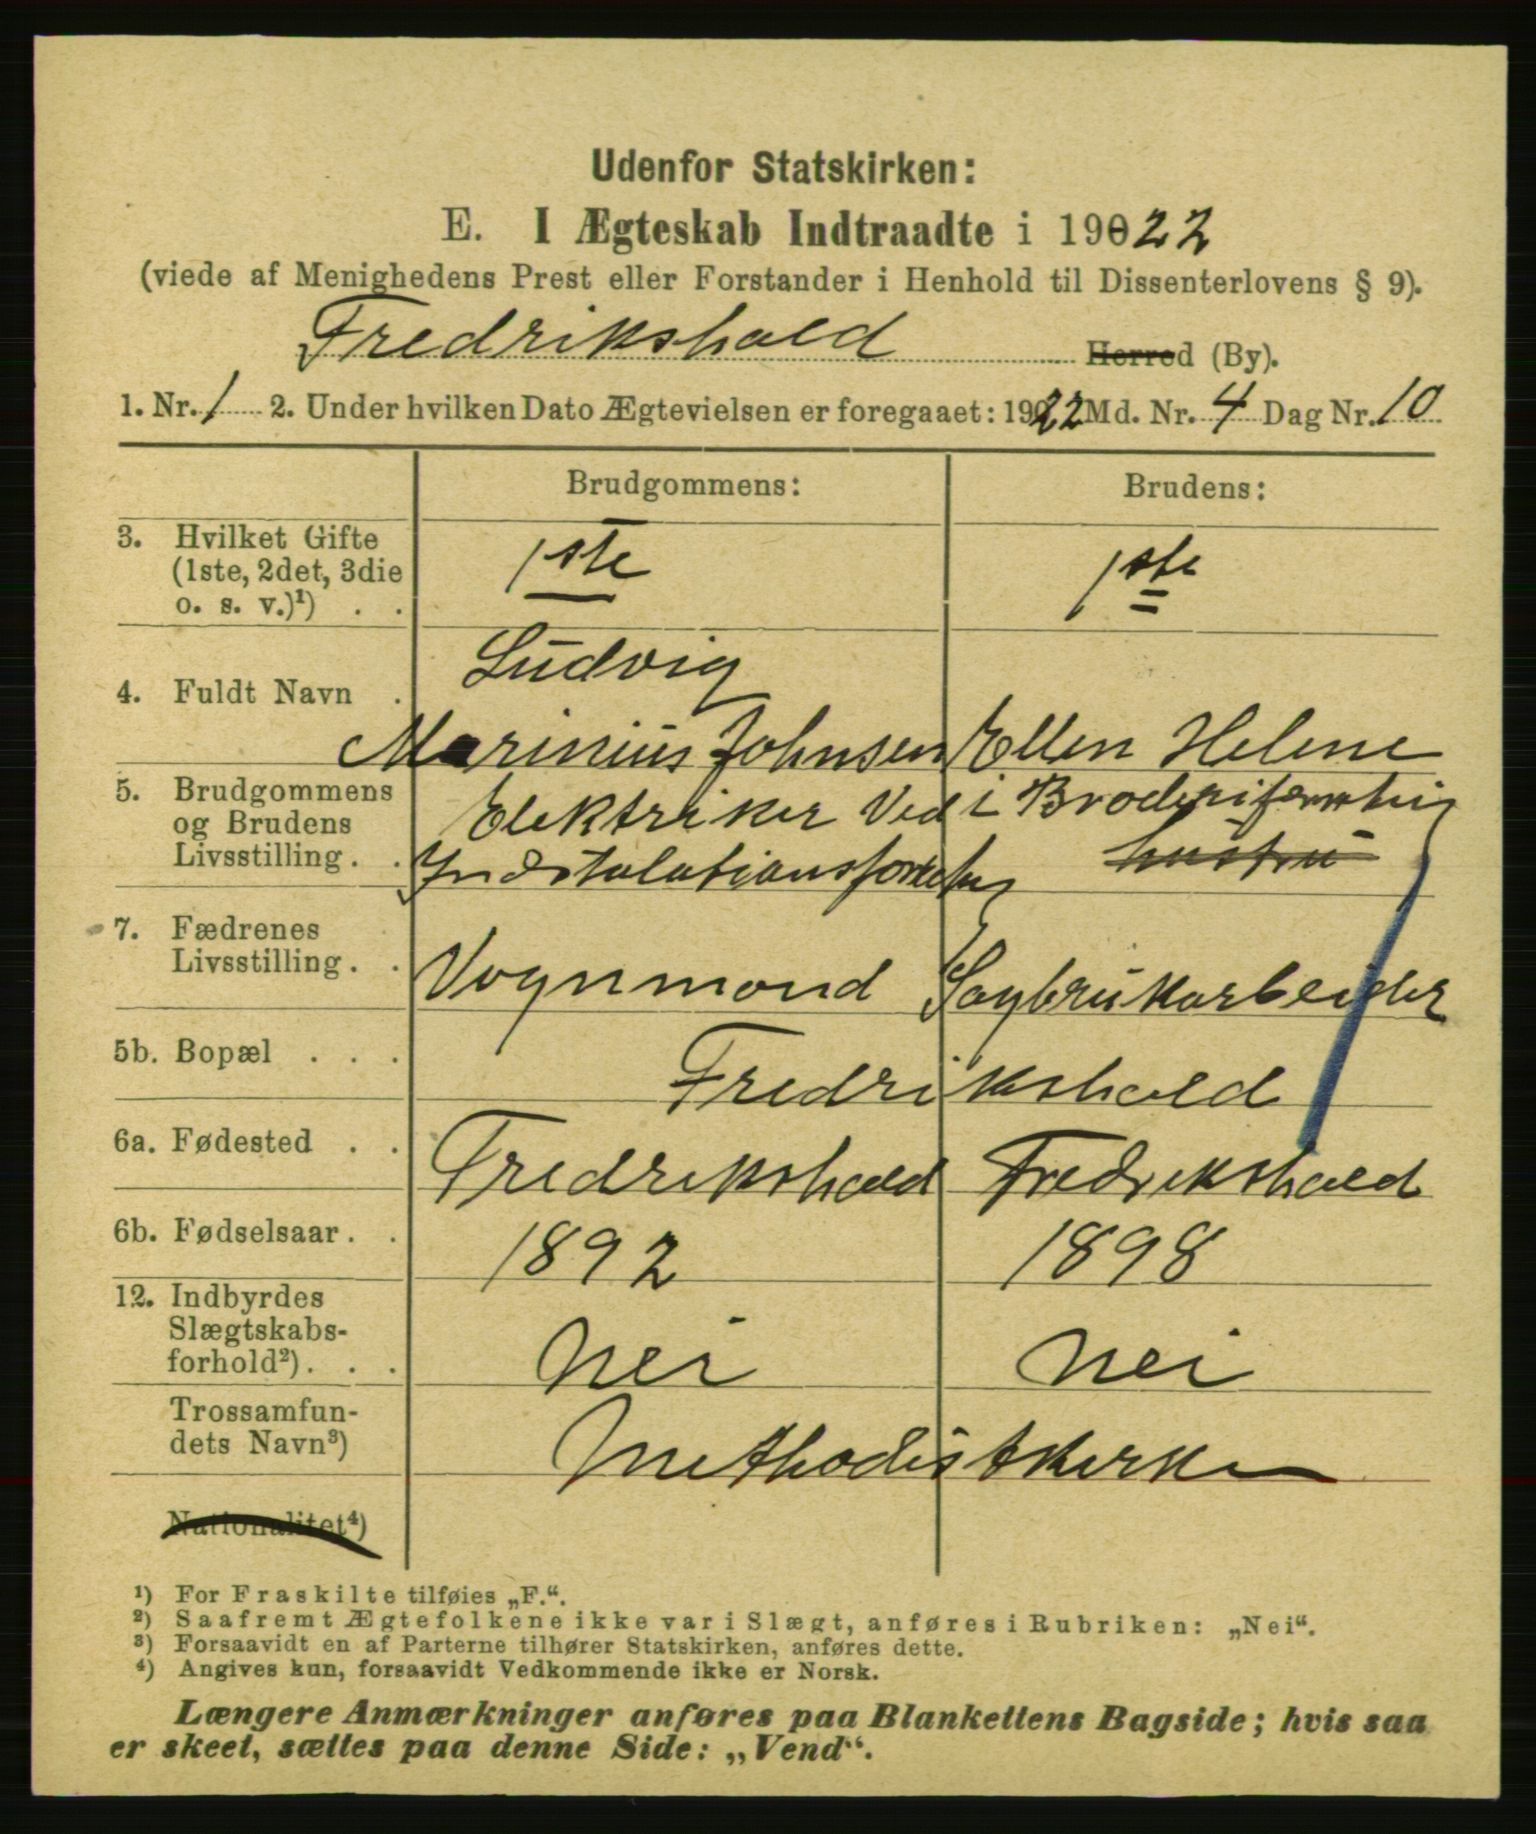 Udenfor Statskirken:
E. I Ægteskab Indtraadte i 19022
(viede af Menighedens Prest eller Forstander i Henhold til Dissenterlovens § 9).
Fredrikshald Herred (By).
1. Nr. 1 2. Under hvilken Dato Ægtevielsen er foregaaet: 1922 Md. Nr. 4 Dag Nr. 10
Brudgommens: Brudens:
3. Hvilket Gifte
(1ste, 2det, 3die
o. s. v.)¹) . .
1ste 1ste
Ludvig
4. Fuldt Navn .
Marinius Johnsen Ellen Helene
5. Brudgommens
og Brudens
Livsstilling . .
Elektriker Ved i
hustru
7. Fædrenes
Livsstilling . .
Vognmand Sagbrukarbeider
5b. Bopæl . . .
Fredrikshald
6a. Fødested . .
Fredrikshald Fredrikshald
6b. Fødselsaar . .
1892 1898
12. Indbyrdes
Slægtskabs-
forhold²) . . .
Nei Nei
Trossamfun-
dets Navn³)
Methodistkirken
Nationalitet⁴)
¹) For Fraskilte tilføies „F.“.
²) Saafremt Ægtefolkene ikke var i Slægt, anføres i Rubriken: „Nei“.
³) Forsaavidt en af Parterne tilhører Statskirken, anføres dette.
⁴) Angives kun, forsaavidt Vedkommende ikke er Norsk.
Længere Anmærkninger anføres paa Blankettens Bagside; hvis saa
er skeet, sættes paa denne Side: „Vend“.